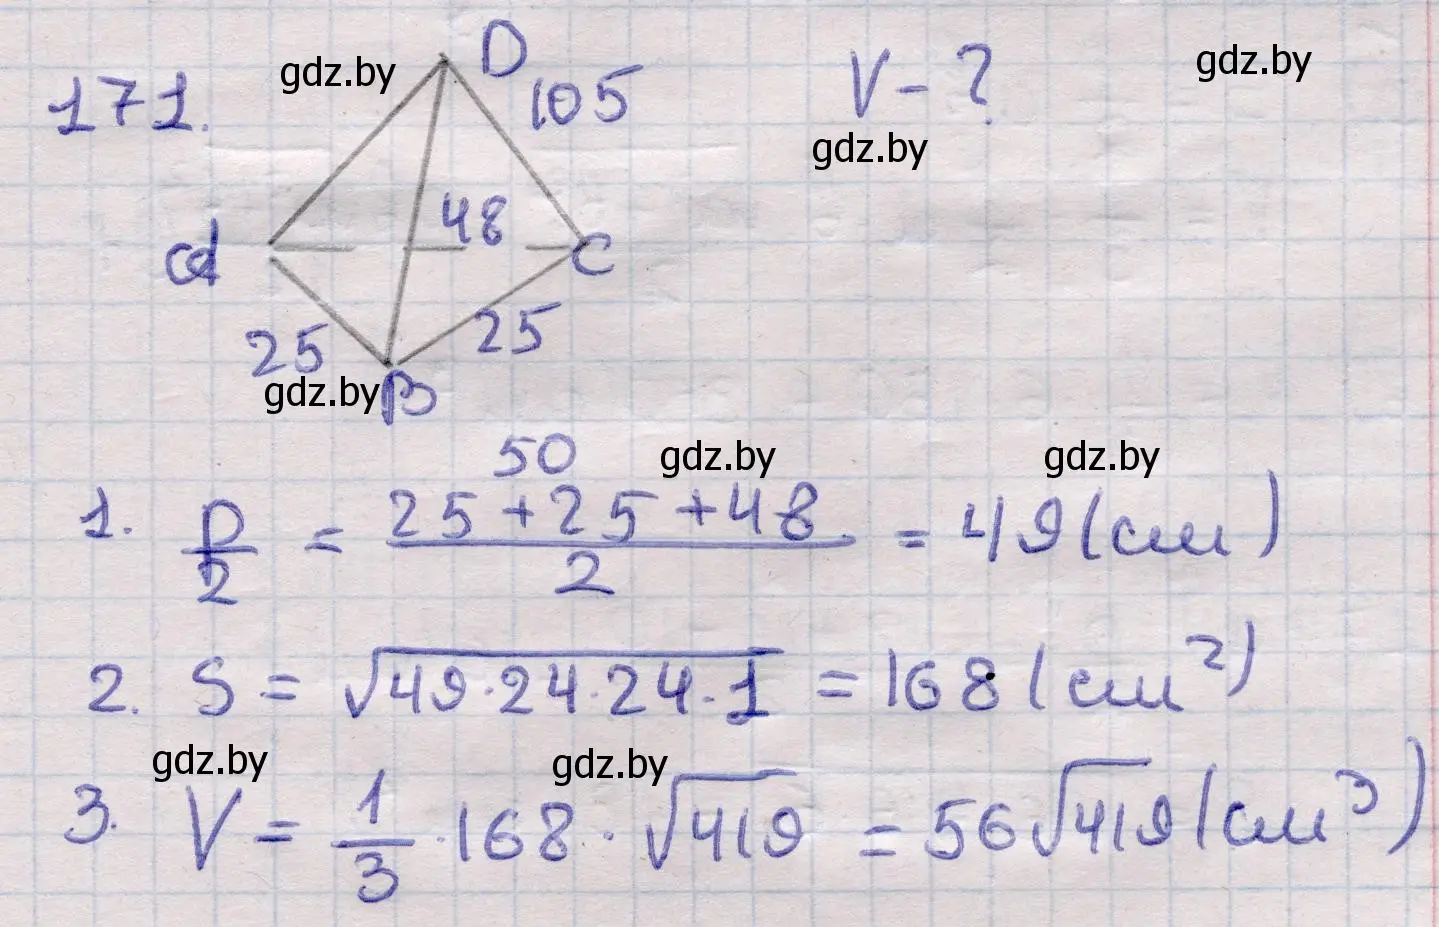 171.
gdz.by
D
105
V - ?
gdz.by
gdz.by
48
A
C
25
25
gdz.by
B
50
gdz.by
gdz.by
1. P/2 = (25 + 25 + 48)/2 = 49 (см)
2. S = √(49 · 24 · 24 · 1) = 168 (см²)
gdz.by
gdz.by
3. V = 1/3 · 168 · √419 = 56√419 (см³)